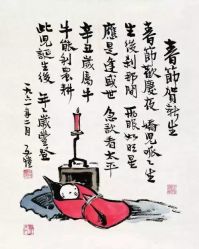 春節賀新生
春節歡慶夜 嬌兒呱呱生
生後刹那間 兩眼如明星
應是逢盛世 急欲看太平
辛丑歲屬牛 牛能利農耕
此兒誕生後 年年歲豐登
一九六一年二月 子愷